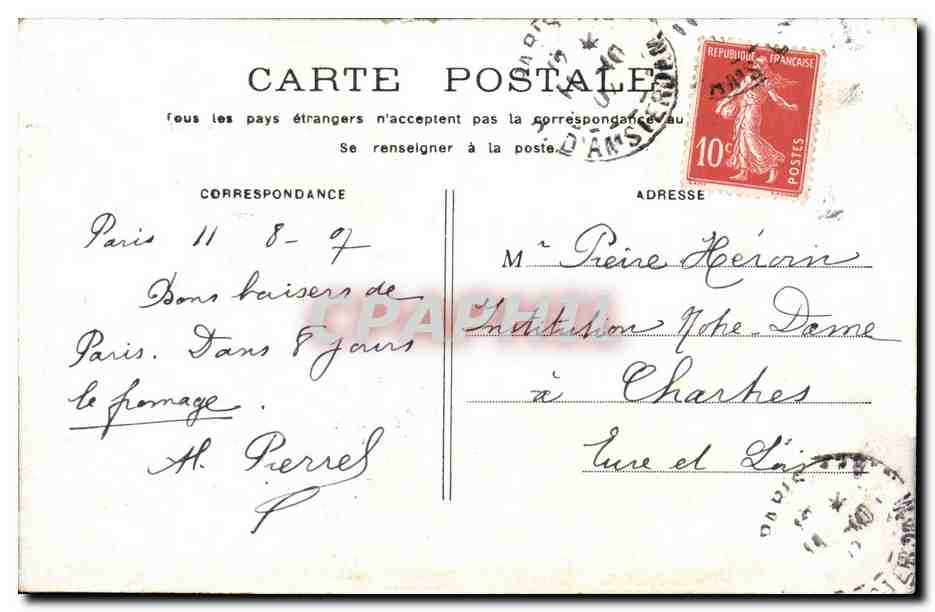 CARTE POSTALE
Tous les pays étrangers n'acceptent pas la correspondance au
Se renseigner à la poste.
CORRESPONDANCE
Paris 11 8-07
Bons baisers de
Paris. Dans 8 jours
le fromage.
M. Pierrel
ADRESSE
Mr Pierre Héroin
Institution Notre-Dame
à Chartres
Eure et Loir
REPUBLIQUE FRANÇAISE
10c
POSTES
PARIS
D'AMSTERDAM
PARIS
CPAPHIL